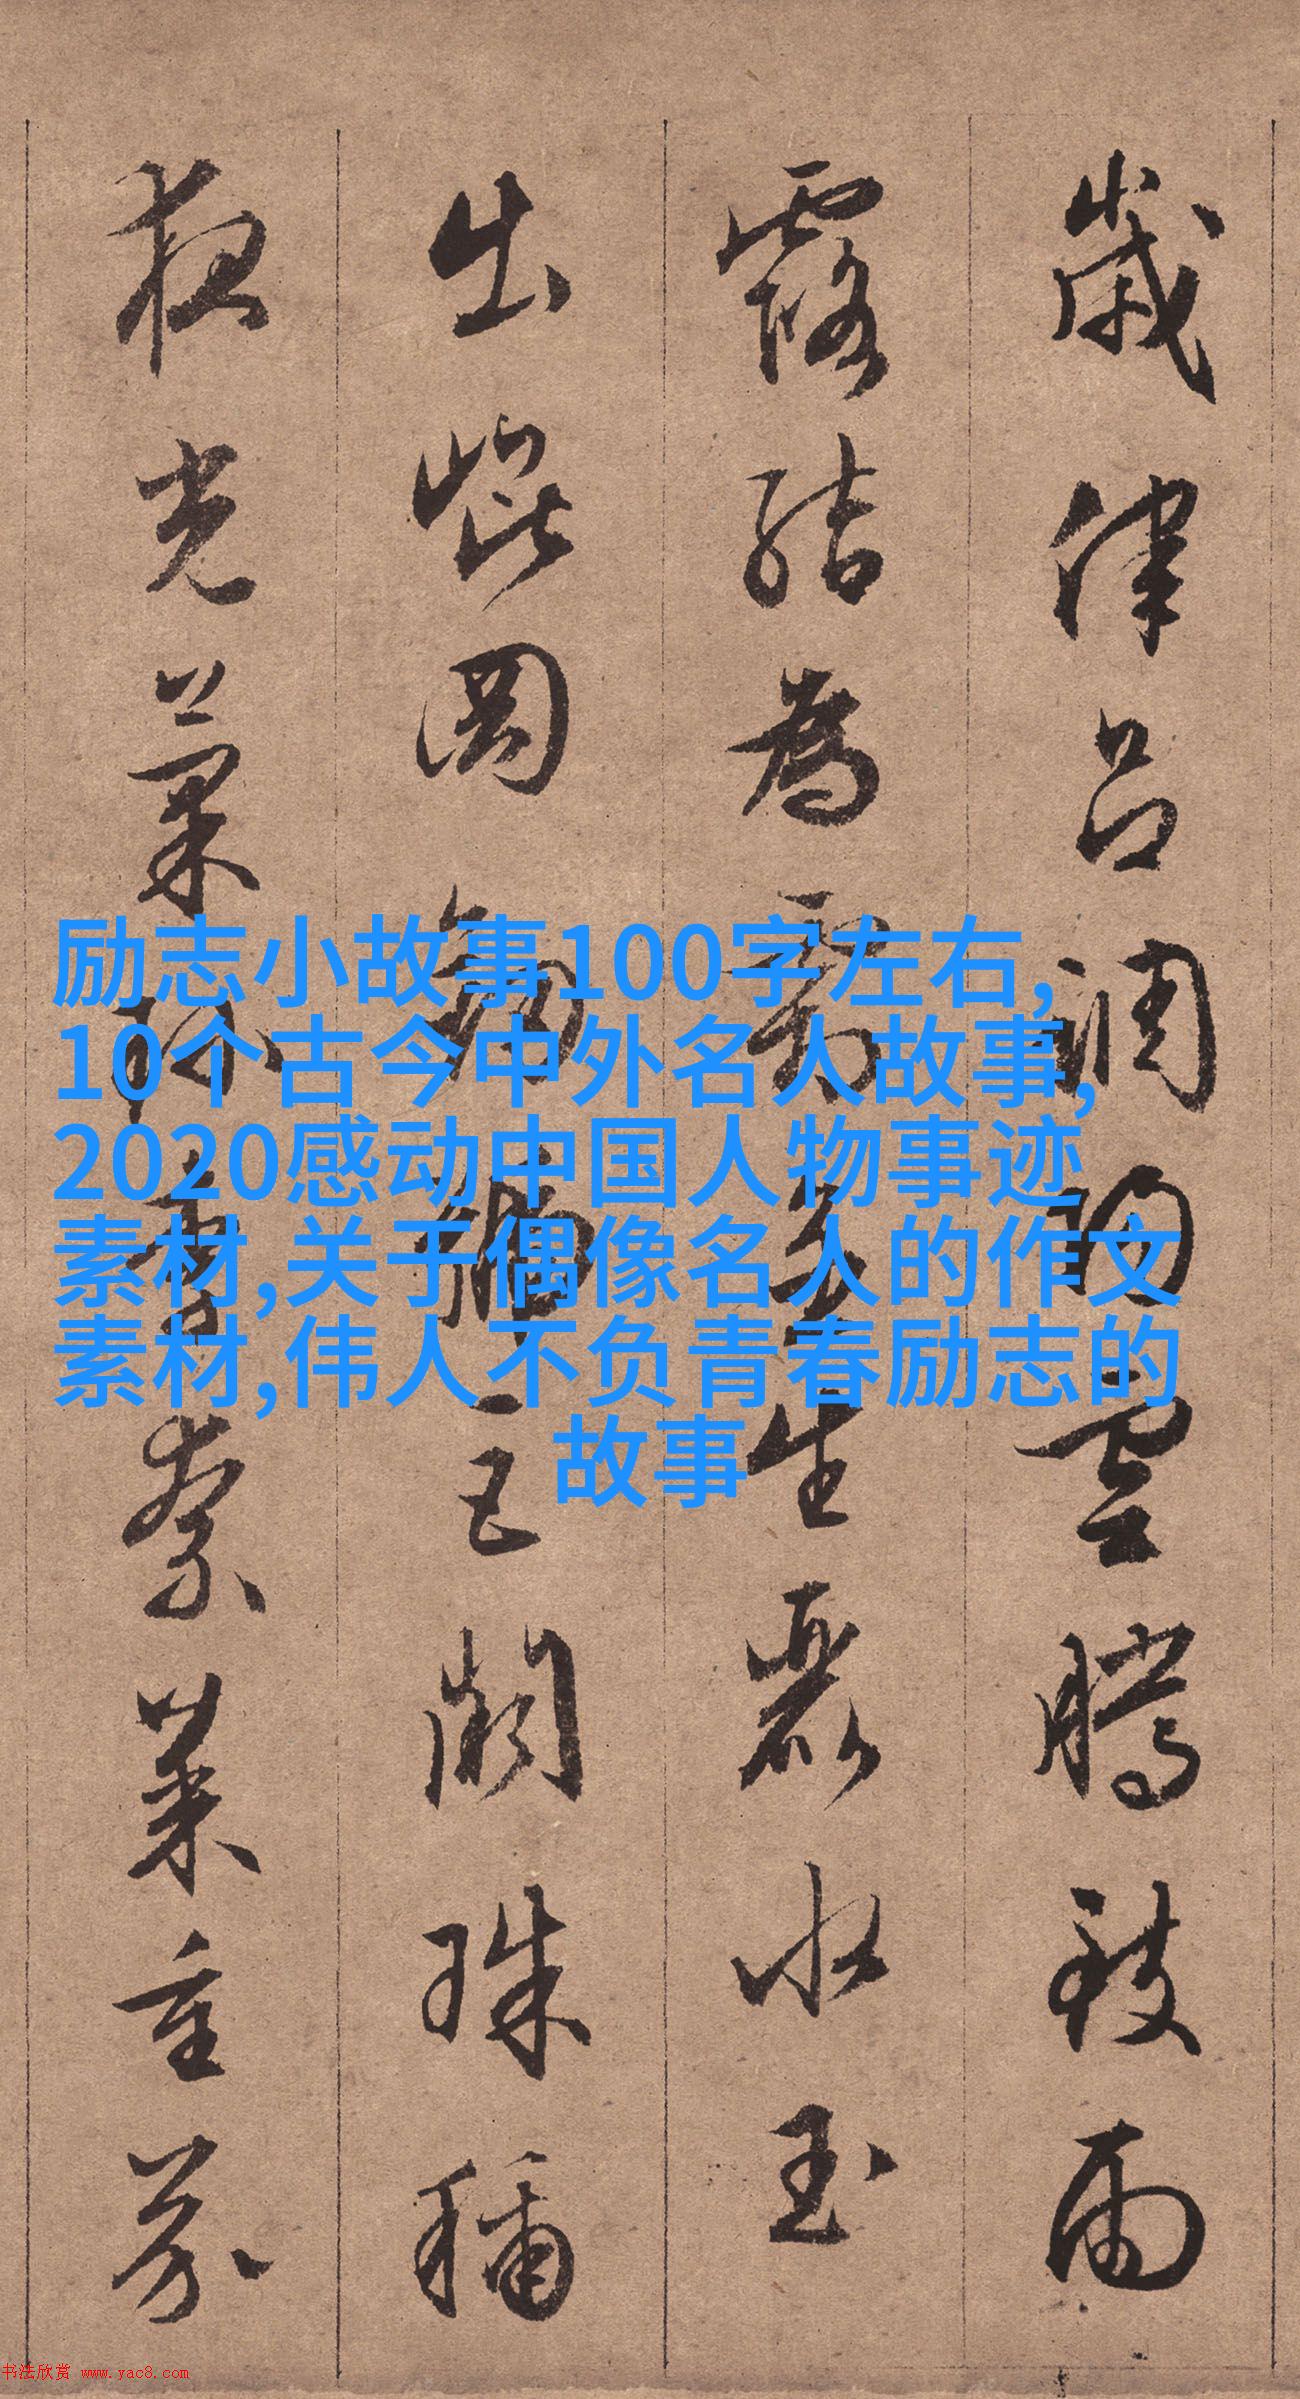 歲律呂調陽雲騰致雨
露結為霜金生麗水玉
出崐岡劍號巨闕珠稱
夜光菓珍李柰菜重芥
励志小故事100字左右,
10个古今中外名人故事,
2020感动中国人物事迹
素材,关于偶像名人的作文
素材,伟人不负青春励志的
故事
书法欣赏 www.yac8.com